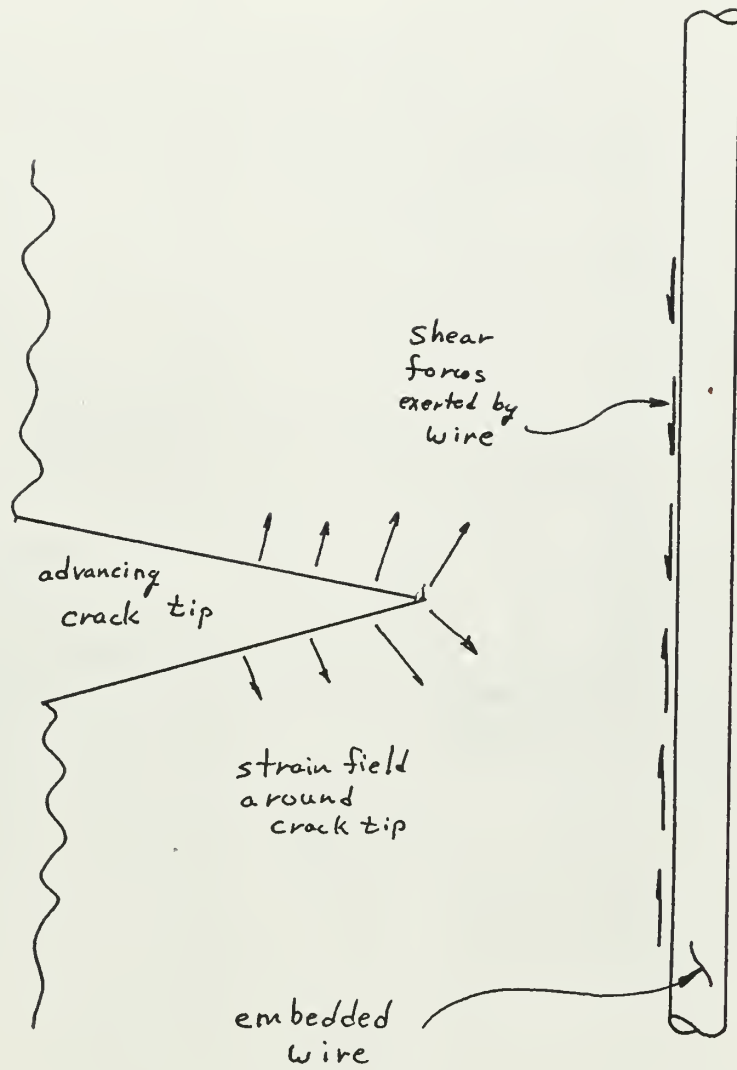 Shear
forces
exerted by
wire
advancing
crack tip
strain field
around
crack tip
embedded
wire